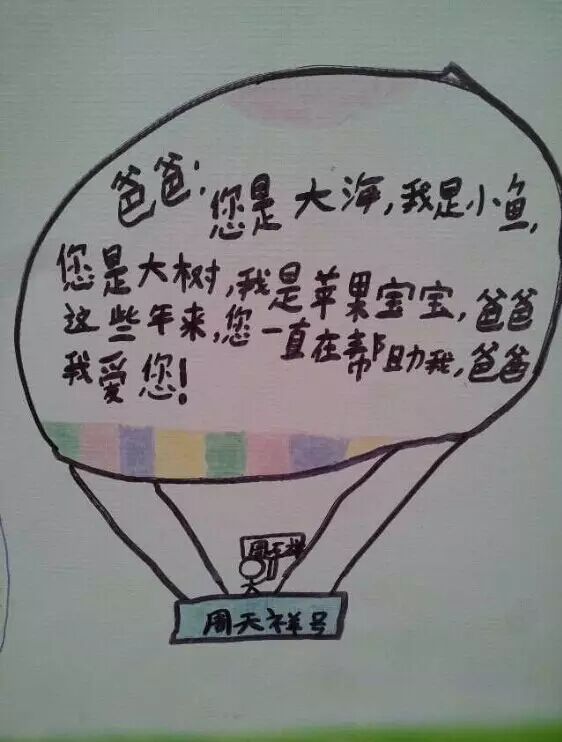 爸爸:您是大海,我是小鱼,
您是大树,我是苹果宝宝,爸爸
这些年来,您一直在帮助我,爸爸
我爱您!
周天祥
周天祥号